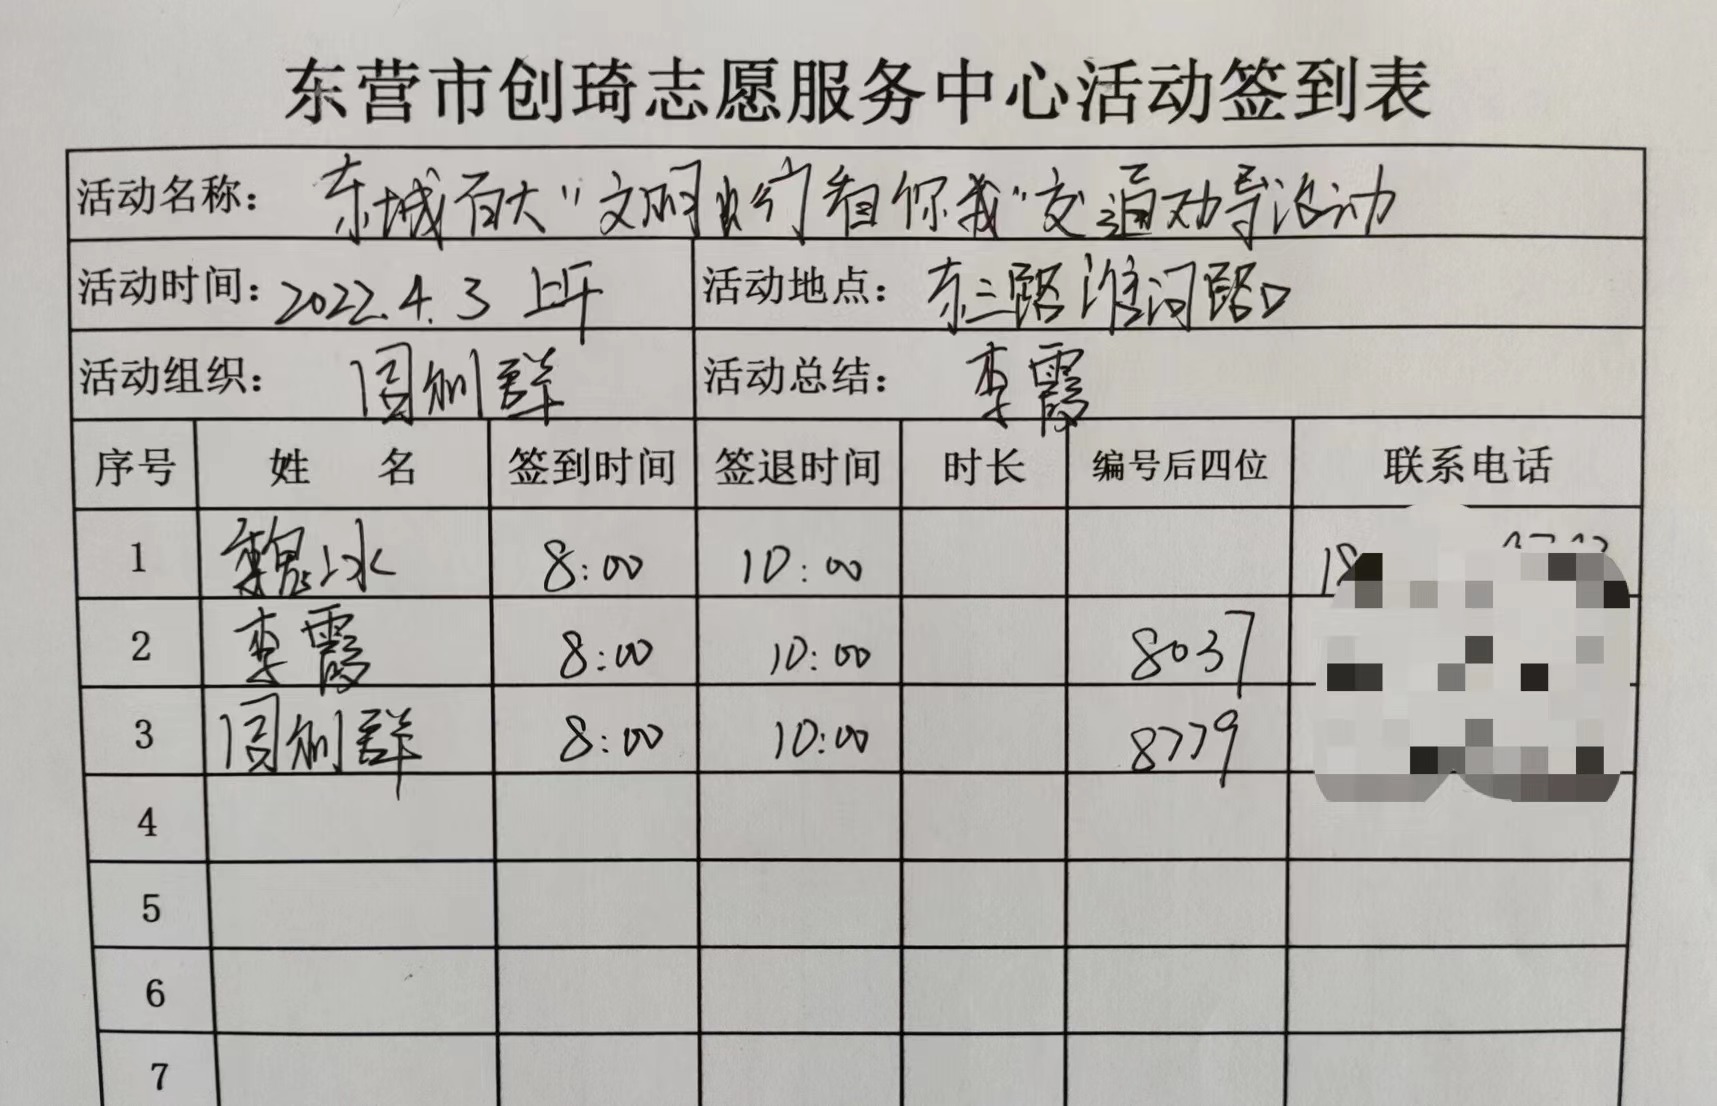 东营市创琦志愿服务中心活动签到表
活动名称： 东城百大“文明出行看你我”交通劝导活动
活动时间：2022.4.3 上午 活动地点： 东三路淮河路口
活动组织： 群 活动总结： 李霞
序号 姓 名 签到时间 签退时间 时长 编号后四位 联系电话
1 魏冰 8:00 10:00 18
2 李霞 8:00 10:00 8037
3 群 8:00 10:00 8779
4
5
6
7